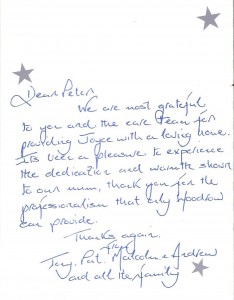 Dear Peter
We are most grateful
to you and the care team for
providing Joyce with a loving home.
Its been a pleasure to experience
the dedication and warmth shown
to our mum, thank you for the
professionalism that only Woodrow
can provide.
Thanks again.
from
Tony, Pat, Malcolm & Andrew
and all the family